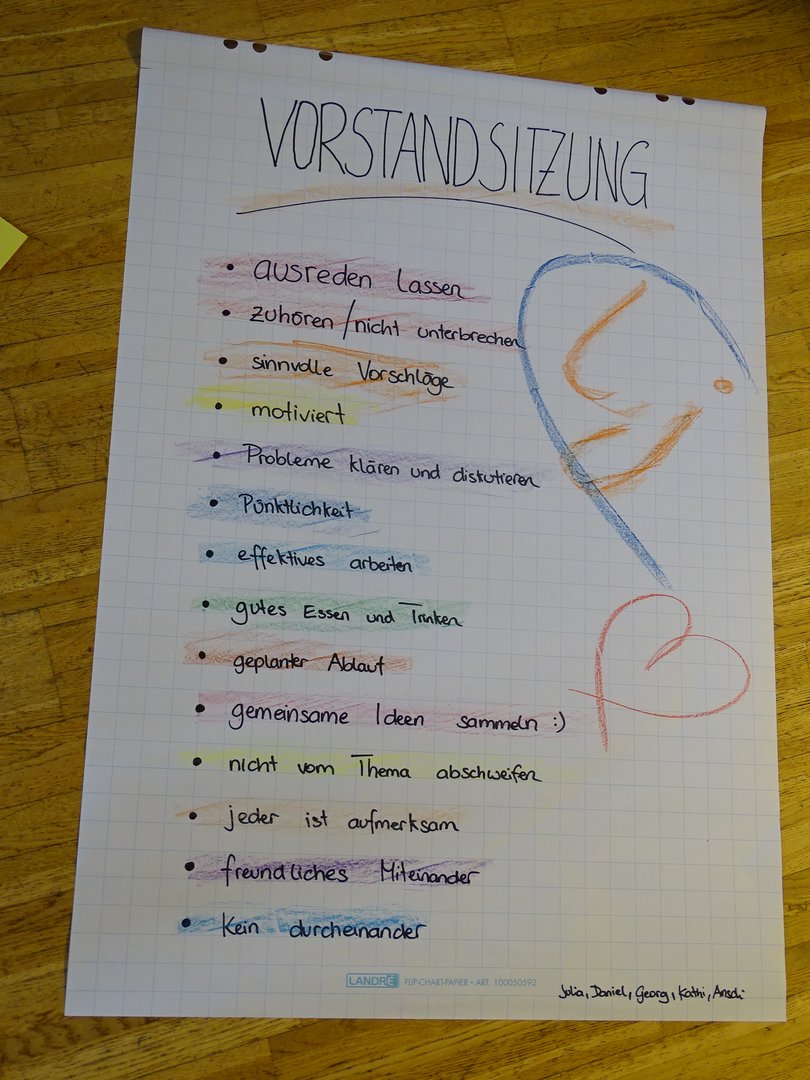 VORSTANDSITZUNG
• ausreden lassen
• zuhören / nicht unterbrechen
• sinnvolle Vorschläge
• motiviert
• Probleme klären und diskutieren
• Pünktlichkeit
• effektives arbeiten
• gutes Essen und Trinken
• geplanter Ablauf
• gemeinsame Ideen sammeln :)
• nicht vom Thema abschweifen
• jeder ist aufmerksam
• freundliches Miteinander
• Kein durcheinander
LANDRÉ FLIP-CHART-PAPIER • ART. 100050592
Julia, Daniel, Georg, Kathi,